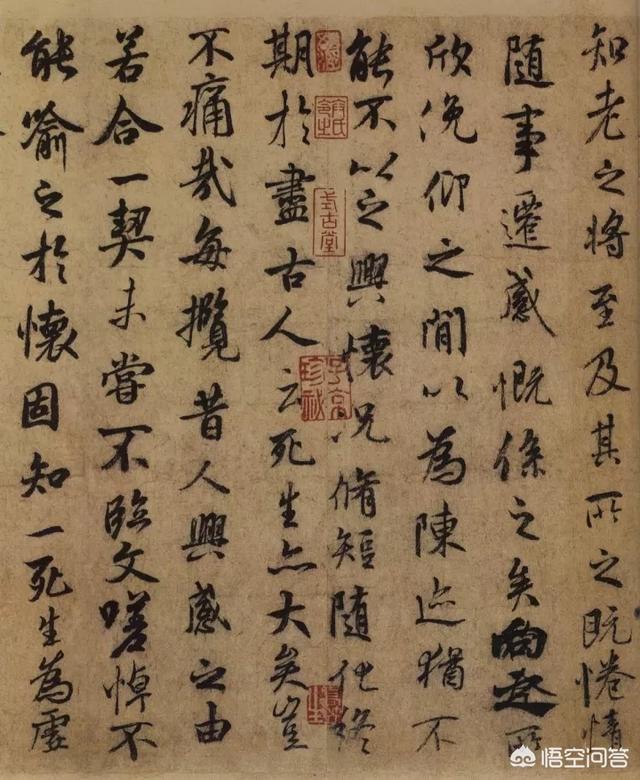 知老之将至及其所之既惓情
隨事遷感慨係之矣向之所
欣俛仰之閒以為陳迹猶不
能不以之興懷況脩短隨化終
期於盡古人云死生亦大矣豈
不痛哉每攬昔人興感之由
若合一契未嘗不臨文嗟悼不
能喻之於懷固知一死生為虛
式古堂
子京
珍秘
悟空问答